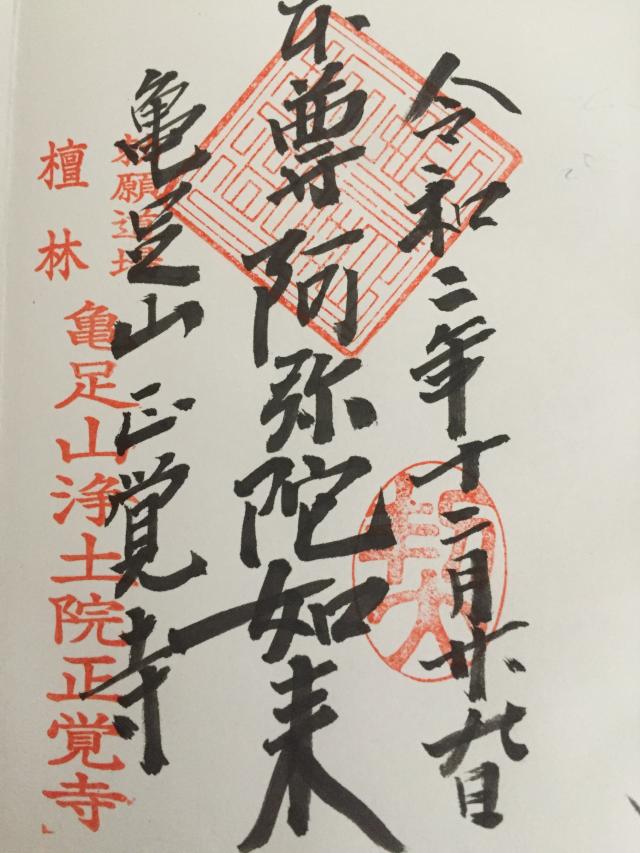 令和二年十二月廿九日
本尊阿弥陀如来
亀足山正覚寺
勅願道場
檀林
亀足山浄土院正覚寺